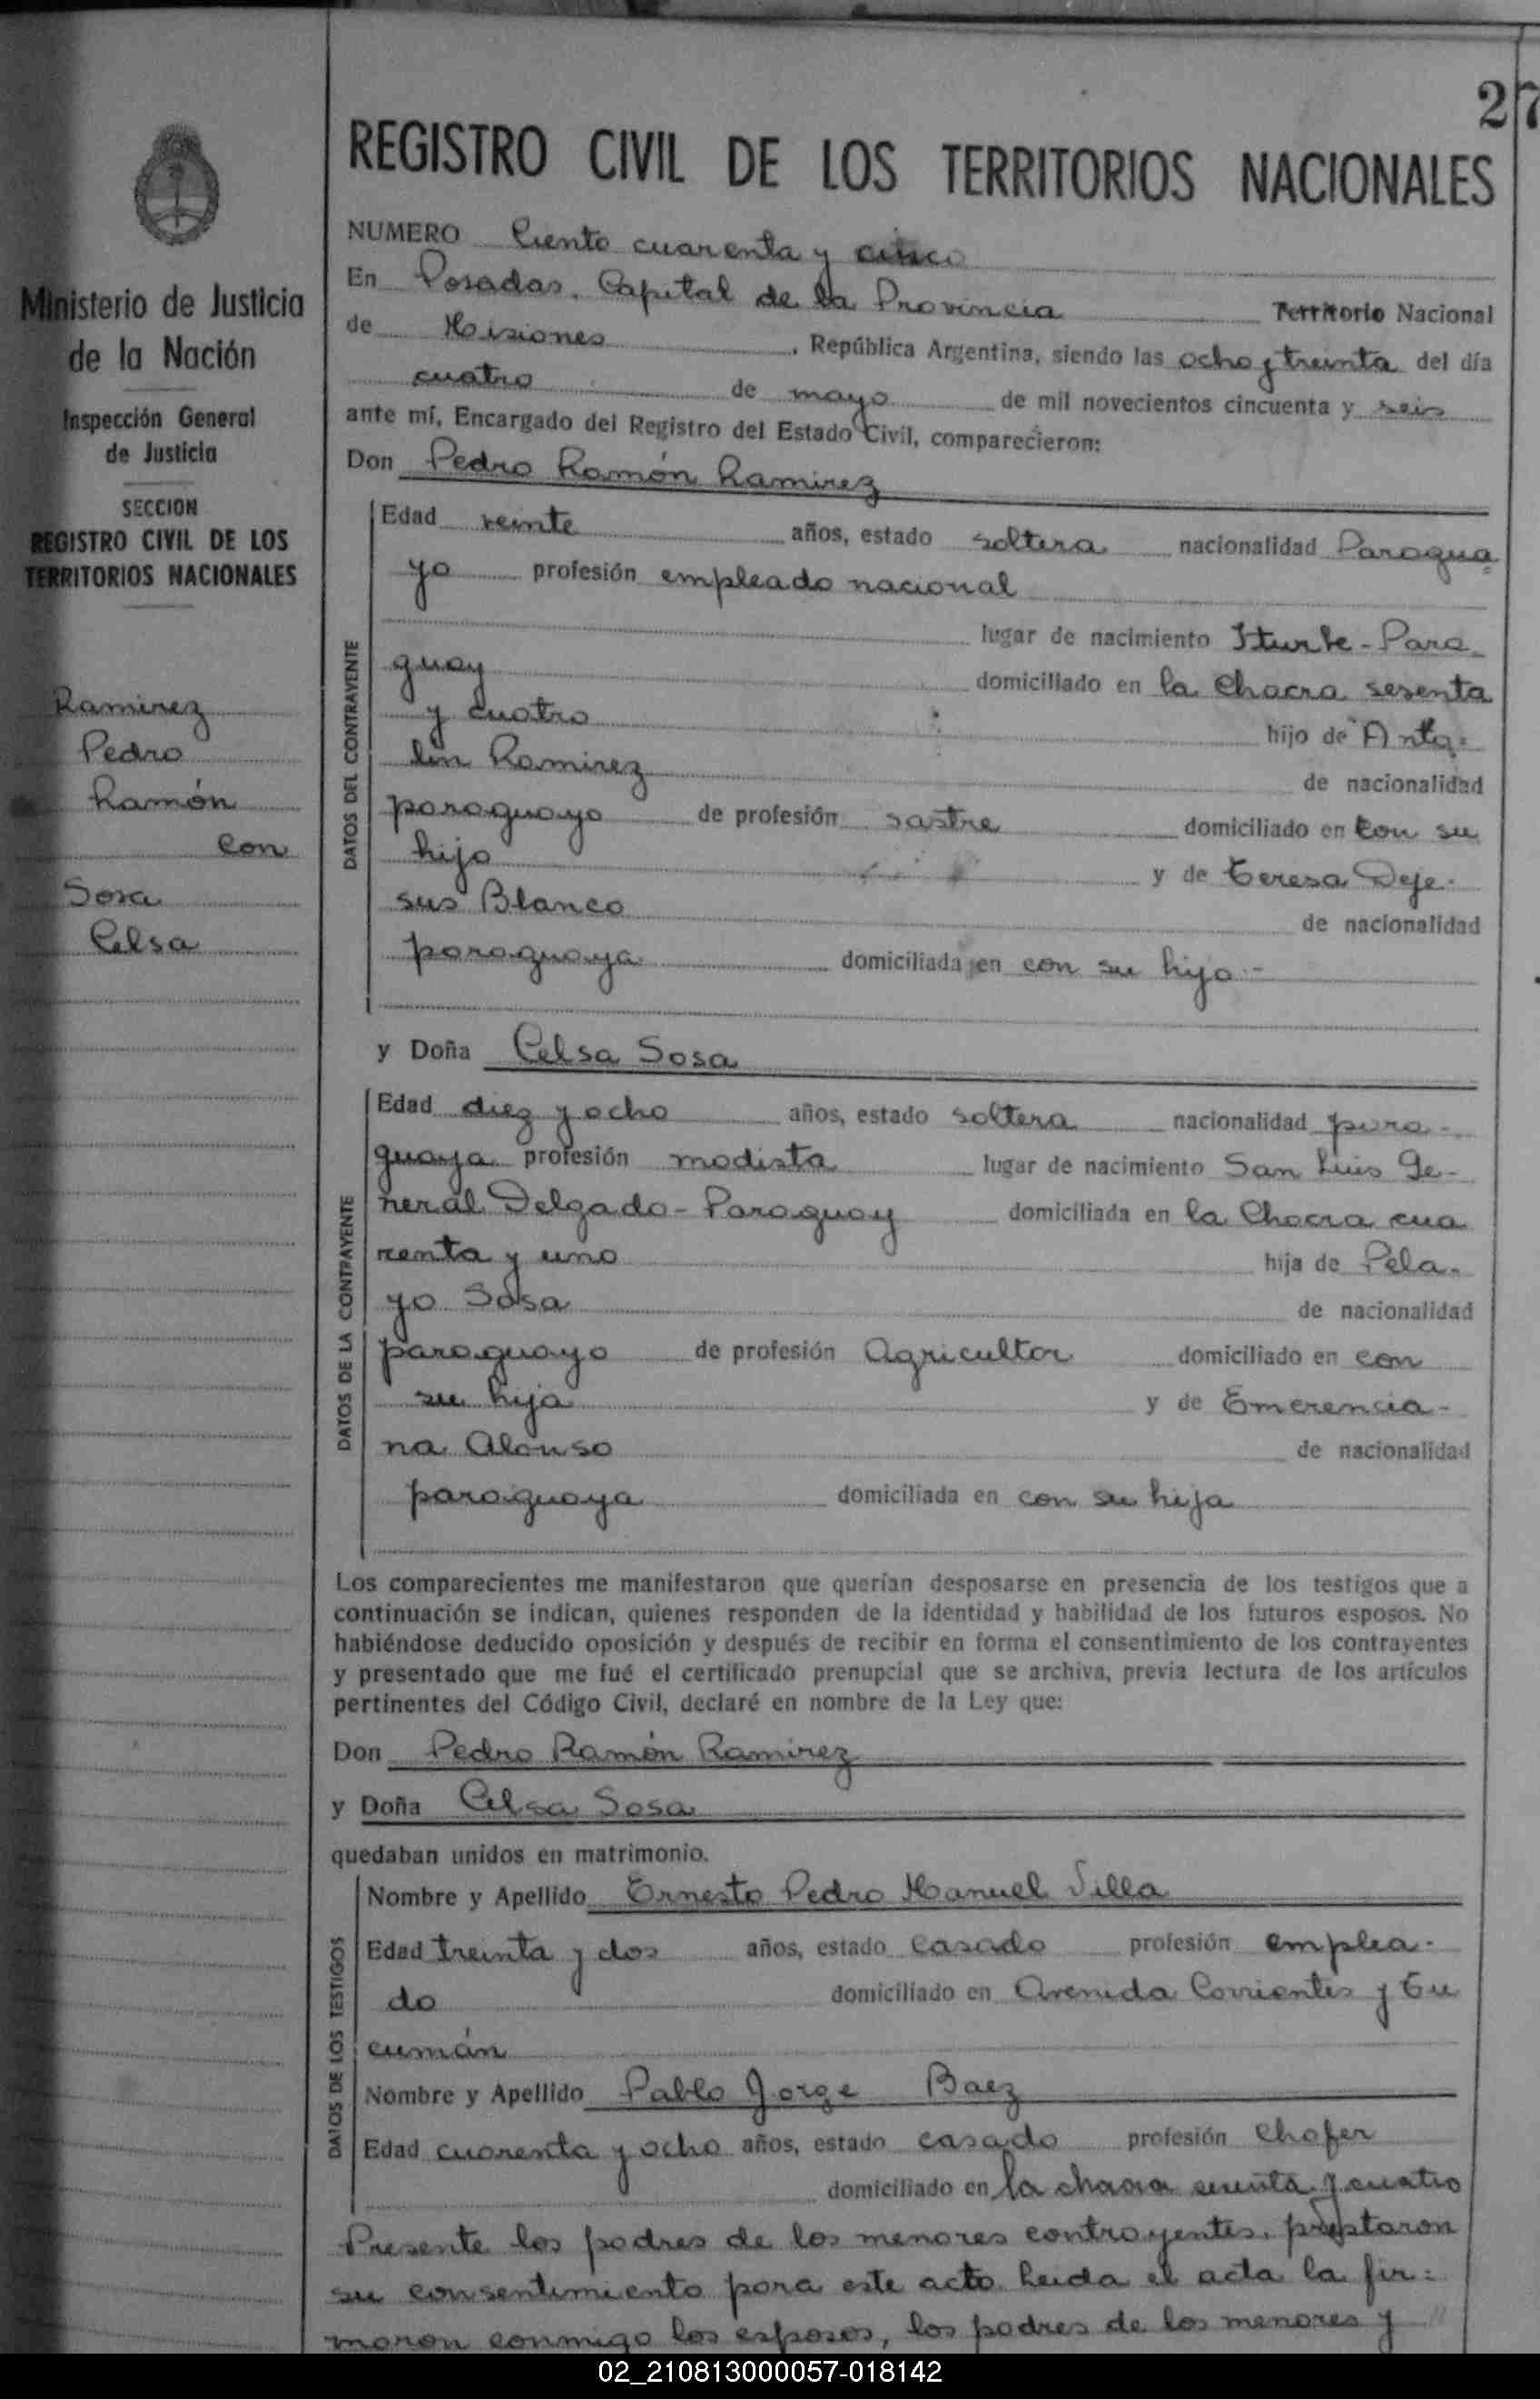 27
REGISTRO CIVIL DE LOS TERRITORIOS NACIONALES
Ministerio de Justicia
de la Nación
Inspección General
de Justicia
SECCION
REGISTRO CIVIL DE LOS
TERRITORIOS NACIONALES
Ramirez
Pedro
Ramón
con
Sosa
Celsa
NUMERO Ciento cuarenta y cinco
En Posadas, Capital de la Provincia Territorio Nacional
de Misiones, República Argentina, siendo las ocho y treinta del día
cuatro de mayo de mil novecientos cincuenta y seis
ante mí, Encargado del Registro del Estado Civil, comparecieron:
Don Pedro Ramón Ramirez
DATOS DEL CONTRAYENTE
Edad veinte años, estado soltera nacionalidad Paragua
yo profesión empleado nacional
lugar de nacimiento Iturbe - Para-
guay domiciliado en la Chacra sesenta
y cuatro hijo de Anto-
lin Ramirez de nacionalidad
paraguayo de profesión sastre domiciliado en con su
hijo y de Teresa Deje-
sus Blanco de nacionalidad
paraguaya domiciliada en con su hijo -
y Doña Celsa Sosa
DATOS DE LA CONTRAYENTE
Edad diez y ocho años, estado soltera nacionalidad para-
guaya profesión modista lugar de nacimiento San Luis Ge-
neral Delgado - Paraguay domiciliada en la Chacra cua
renta y uno hija de Pela-
yo Sosa de nacionalidad
paraguayo de profesión Agricultor domiciliado en con
su hija y de Emerencia-
na Alonso de nacionalidad
paraguaya domiciliada en con su hija
Los comparecientes me manifestaron que querían desposarse en presencia de los testigos que a
continuación se indican, quienes responden de la identidad y habilidad de los futuros esposos. No
habiéndose deducido oposición y después de recibir en forma el consentimiento de los contrayentes
y presentado que me fué el certificado prenupcial que se archiva, previa lectura de los artículos
pertinentes del Código Civil, declaré en nombre de la Ley que:
Don Pedro Ramón Ramirez
y Doña Celsa Sosa
quedaban unidos en matrimonio.
DATOS DE LOS TESTIGOS
Nombre y Apellido Ernesto Pedro Manuel Villa
Edad treinta y dos años, estado casado profesión emplea-
do domiciliado en Avenida Corrientes y Tu
cumán
Nombre y Apellido Pablo Jorge Baez
Edad cuarenta y ocho años, estado casado profesión Chofer
domiciliado en la chacra sesenta y cuatro
Presente los padres de los menores contrayentes, prestaron
su consentimiento para este acto. Leida el acta la fir=
maron conmigo los esposos, los padres de los menores y
02_210813000057-018142